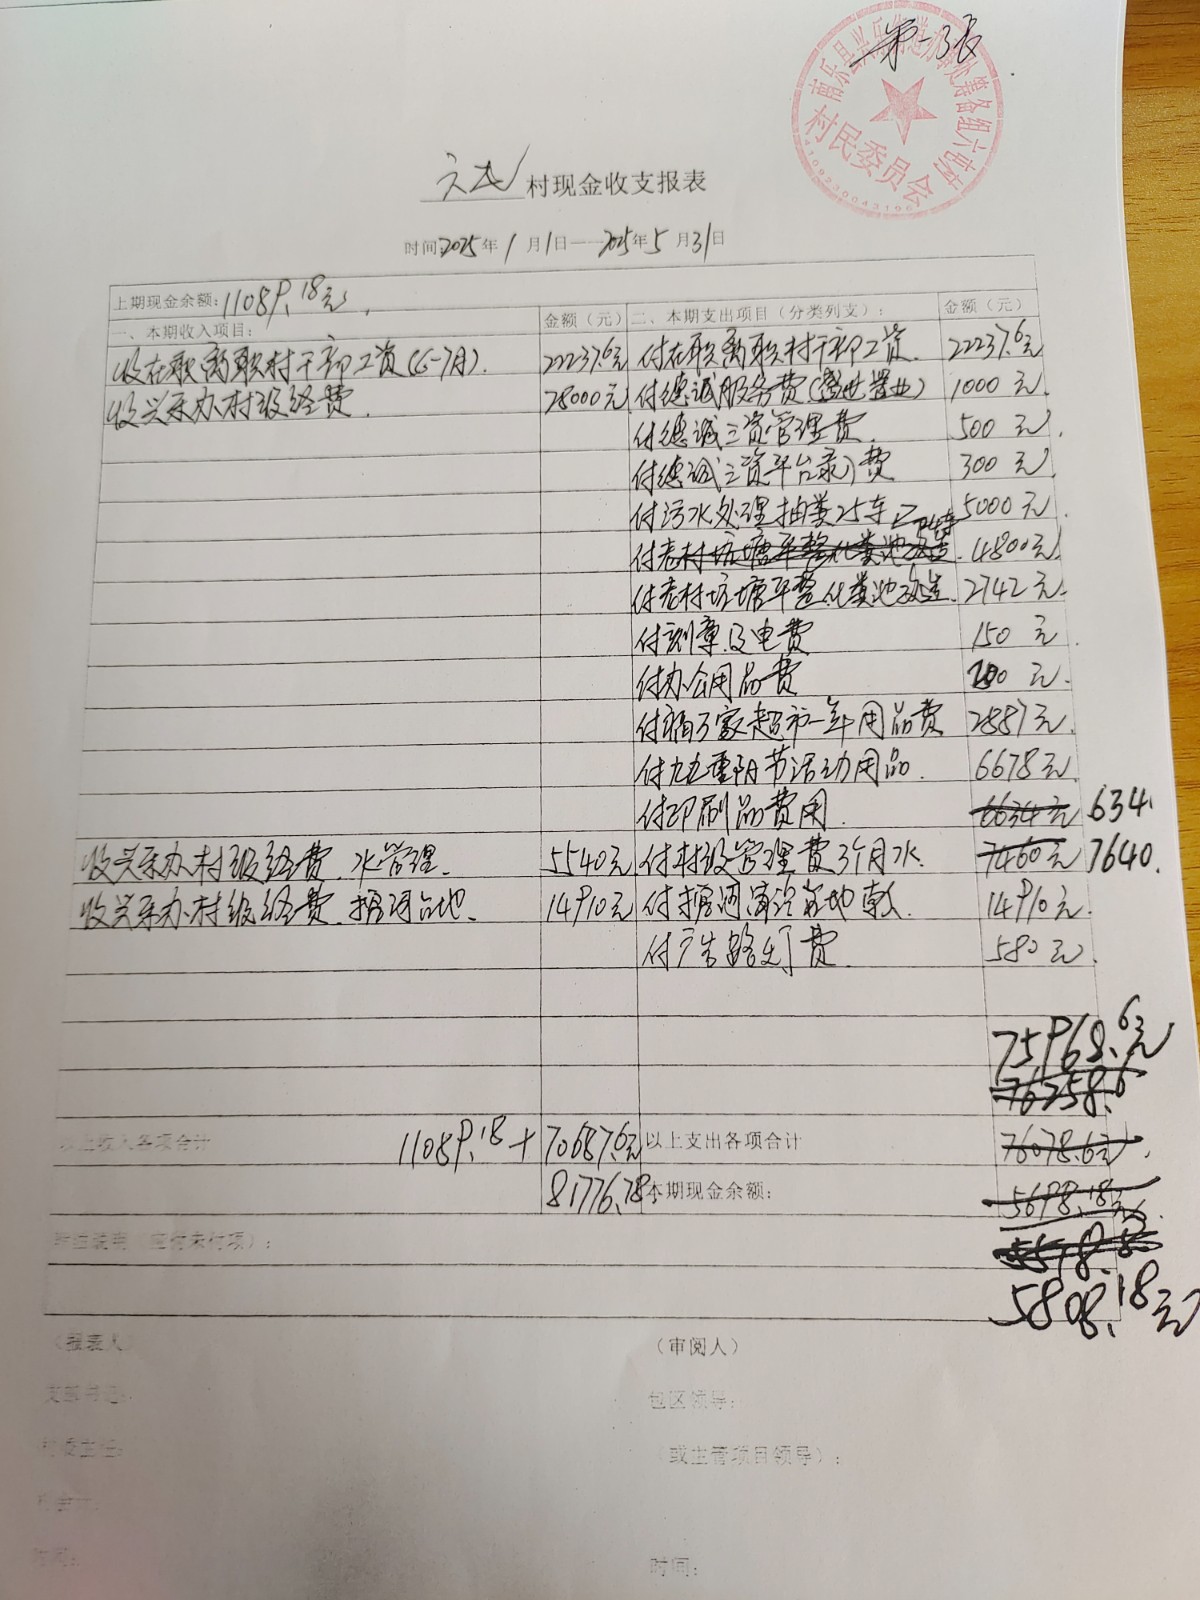 第一张
南乐县兴乐街道办事处筹备组六屯村
村民委员会
4109230043196
村现金收支报表
时间:2025年1月1日——2025年5月31日
上期现金余额:11089.18元
一、本期收入项目: 金额（元） 二、本期支出项目（分类列支）: 金额（元）
收在职离职村干部工资(6-7月). 22237.6元 付在职离职村干部工资. 22237.6元
收兴乐办村级经费. 28000元 付德诚服务费(盛世置业) 1000元
付德诚三资管理费. 500元.
付德诚三资平台录入费 300元.
付污水处理抽粪25车 5000元.
24车
付老村坑塘平整化粪池改造. 4800元.
付老村坑塘平整.化粪池改造. 2742元.
付刻章及电费 150元.
付办公用品费 元.
付福万家超市一年用品费 2887元.
付九九重阳节活动用品. 6678元.
付印刷品费用. 6634元 634.
收兴乐办村级经费.水管理. 5540元 付村级管理费3个月水. 7460元 7640.
收兴乐办村级经费. 占地. 14910元 付 占地款. 14910元.
付 路灯费. 580元.
75968.6元
76258.6
以上收入各项合计 11089.18+70687.6元 以上支出各项合计 76078.6元.
81776.78 本期现金余额: 5698.18元
5808.18元
（报表人） （审阅人）
支部书记: 包区领导:
村委主任: （或主管项目领导）:
时间: 时间: